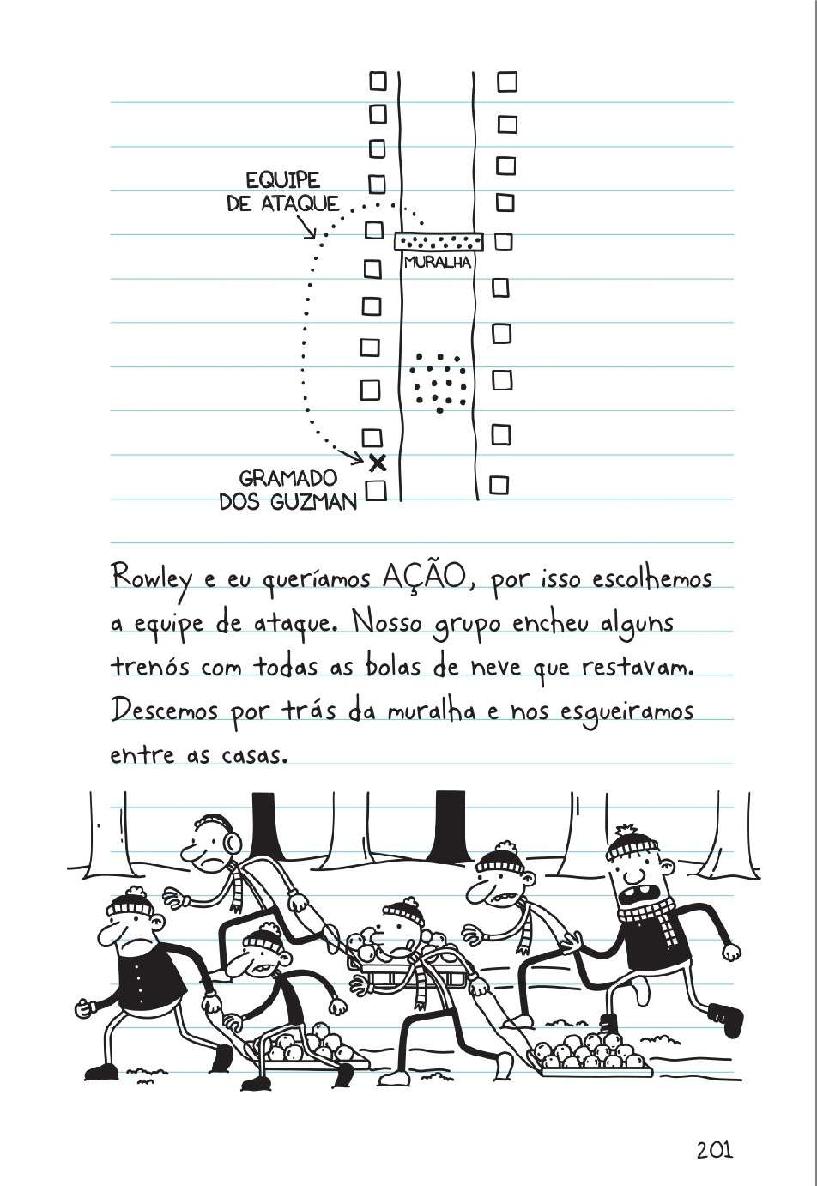 EQUIPE
DE ATAQUE
MURALHA
GRAMADO
DOS GUZMAN
Rowley e eu queríamos AÇÃO, por isso escolhemos
a equipe de ataque. Nosso grupo encheu alguns
trenós com todas as bolas de neve que restavam.
Descemos por trás da muralha e nos esgueiramos
entre as casas.
201